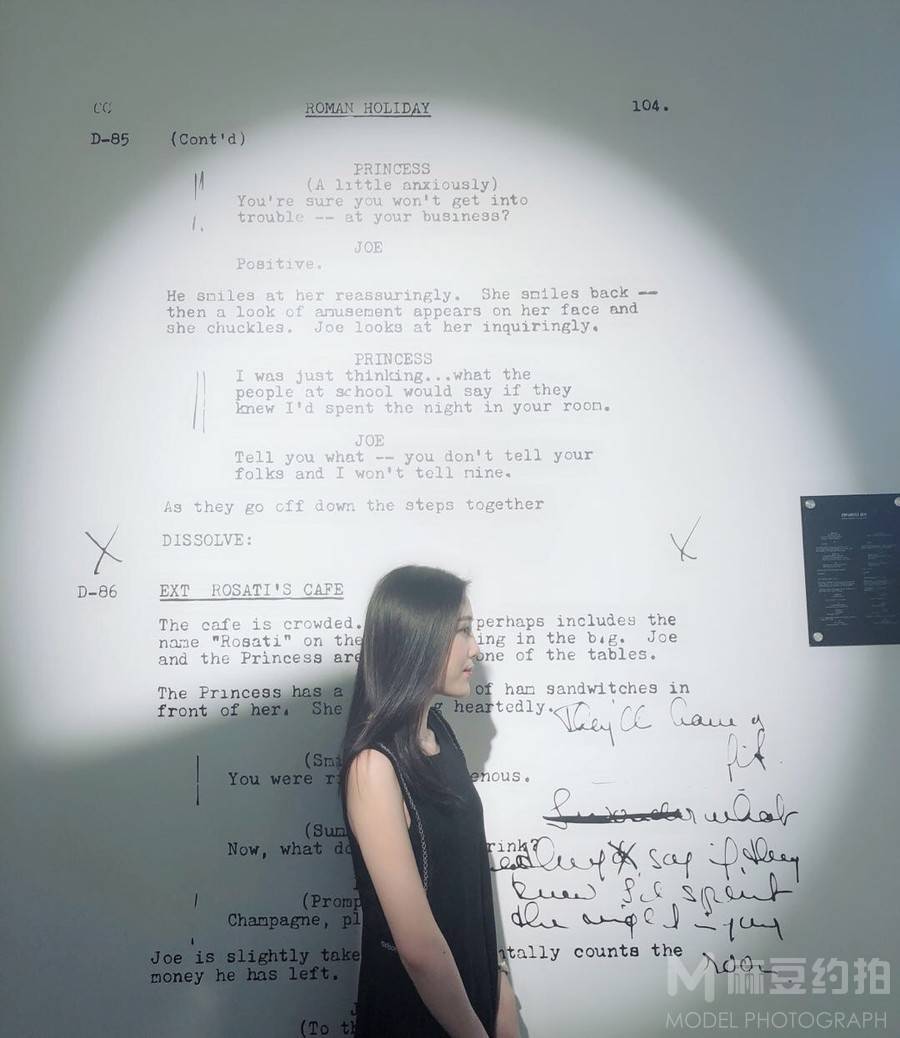 CC ROMAN HOLIDAY 104.
D-85 (Cont'd)
PRINCESS
(A little anxiously)
You're sure you won't get into
trouble -- at your business?
JOE
Positive.
He smiles at her reassuringly. She smiles back --
then a look of amusement appears on her face and
she chuckles. Joe looks at her inquiringly.
PRINCESS
I was just thinking...what the
people at school would say if they
knew I'd spent the night in your room.
JOE
Tell you what -- you don't tell your
folks and I won't tell mine.
As they go off down the steps together
X DISSOLVE: X
D-86 EXT ROSATI'S CAFE
The cafe is crowded. perhaps includes the
name "Rosati" on the ing in the b.g. Joe
and the Princess are one of the tables.
The Princess has a of ham sandwitches in
front of her. She heartedly.
They'll have a
fit.
(Smi
You were r enous.
what
(Sun
Now, what do rink?
they say if they
knew I'd spent
(Promp
the night in your
Champagne, pl
Joe is slightly take ntally counts the
room
money he has left.
J
(To th
麻豆约拍
MODEL PHOTOGRAPH